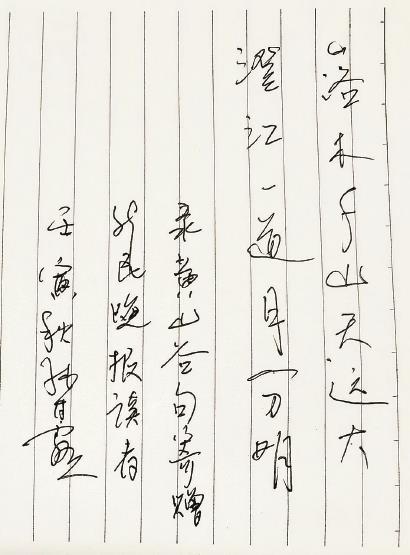 落木千山天远大
澄江一道月分明
录黄山谷句寄赠
新民晚报读者
壬寅秋孙甘露